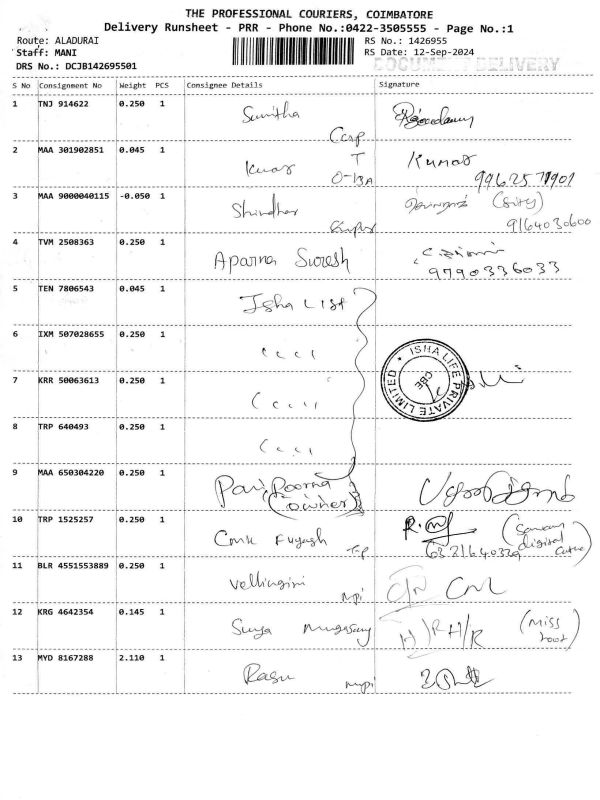 THE PROFESSIONAL COURIERS, COIMBATORE
Delivery Runsheet - PRR - Phone No.:0422-3505555 - Page No.:1
Route: ALADURAI
RS No.: 1426955
Staff: MANI
RS Date: 12-Sep-2024
DRS No.: DCJB142695501
DOCUMENT DELIVERY
S No Consignment No Weight PCS Consignee Details Signature
1 TNJ 914622 0.250 1 Sunitha
2 MAA 301902851 0.045 1 Kumar T Kumar
O-13A 9962571901
3 MAA 9000040115 -0.050 1 Shindhar (Sity)
9164030600
4 TVM 2508363 0.250 1 Aparna Suresh
9790336033
5 TEN 7806543 0.045 1 Isha List
6 IXM 507028655 0.250 1 ((((
ISHA LIFE PRIVATE LIMITED
CBE
7 KRR 50063613 0.250 1 ((((
8 TRP 640493 0.250 1 ((((
9 MAA 650304220 0.250 1 Pari Poorna
(owner)
10 TRP 1525257 0.250 1 R.
digital
11 BLR 4551553889 0.250 1 Vellingiri mpi
12 KRG 4642354 0.145 1 Surya Murgasamy H/RH/R (Miss
13 MYD 8167288 2.110 1 Rasu mpi